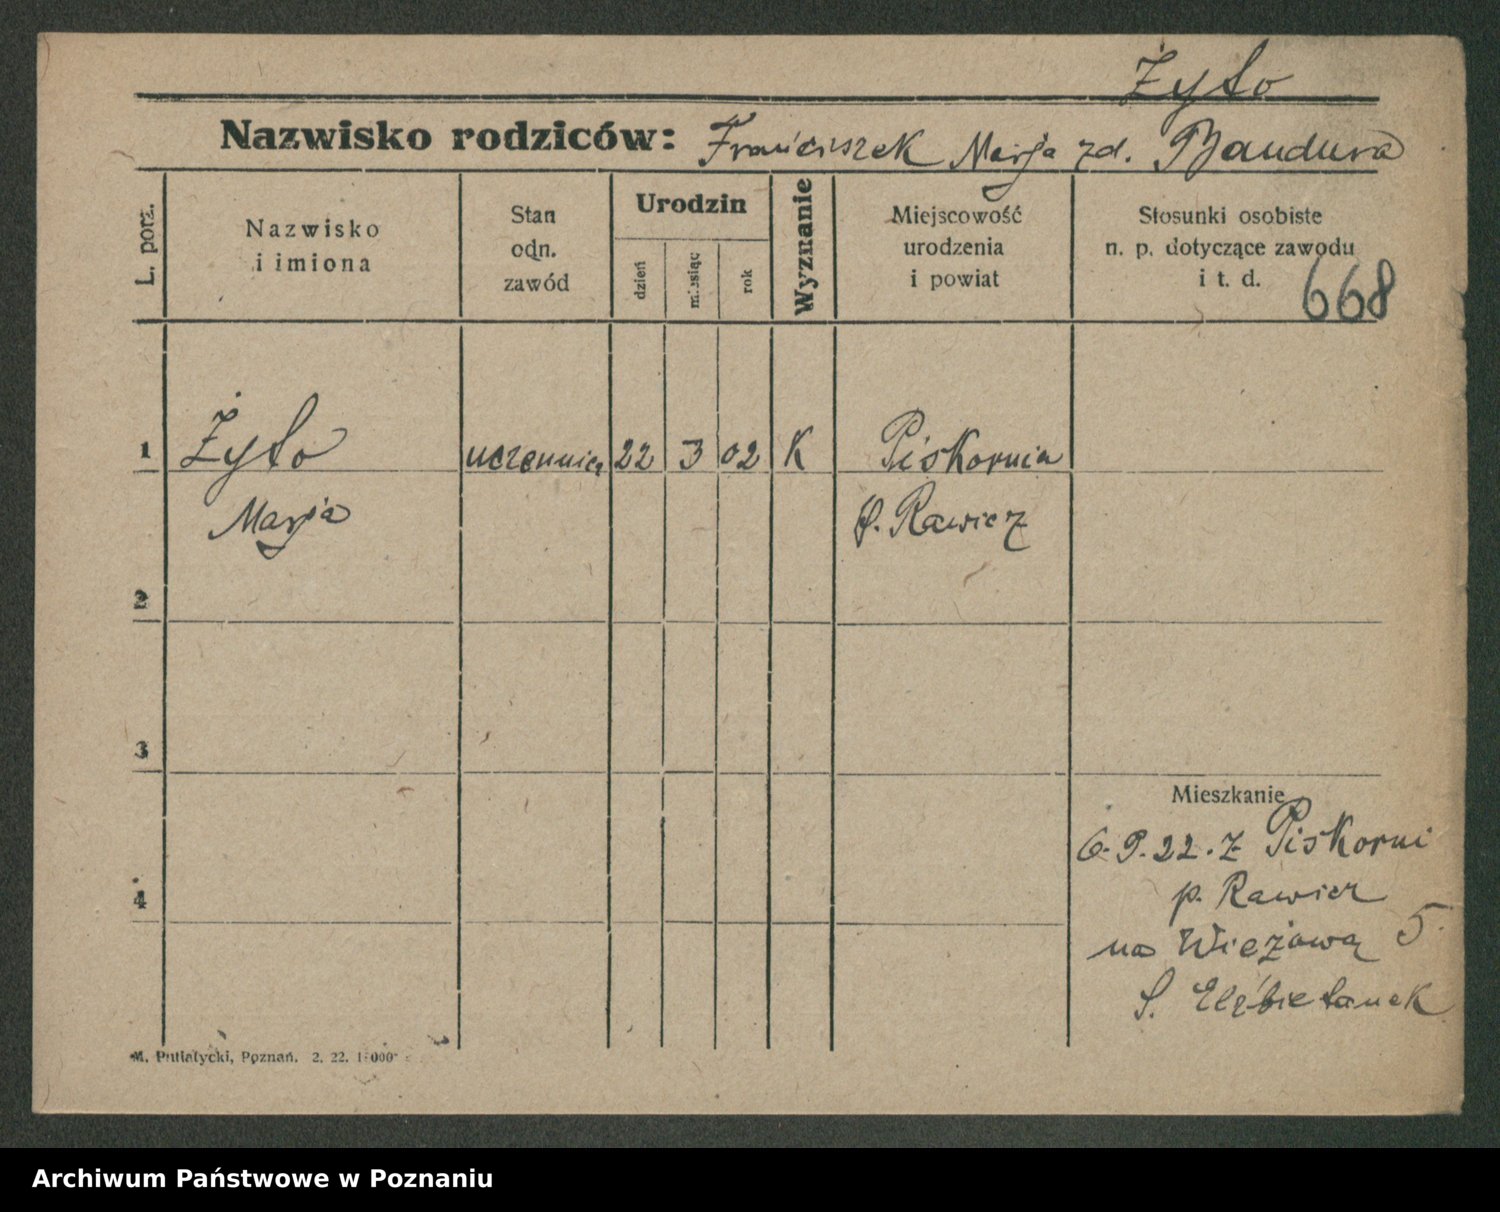 Żyto
Nazwisko rodziców: Franciszek Marja zd. Bandura
L. porz.
Nazwisko
i imiona
Stan
odn.
zawód
Urodzin
dzień
miesiąc
rok
Wyznanie
Miejscowość
urodzenia
i powiat
Stosunki osobiste
n. p. dotyczące zawodu
i t. d.
668
1 Żyto uczennica 22 3 02 K Piskornia
Marja p. Rawicz
2
3
Mieszkanie
6. 9. 22. z Piskorni
p. Rawicz
4
na Wieżową 5.
S. Elżbietanek
M. Putiatycki, Poznań. 2. 22. 1000
Archiwum Państwowe w Poznaniu